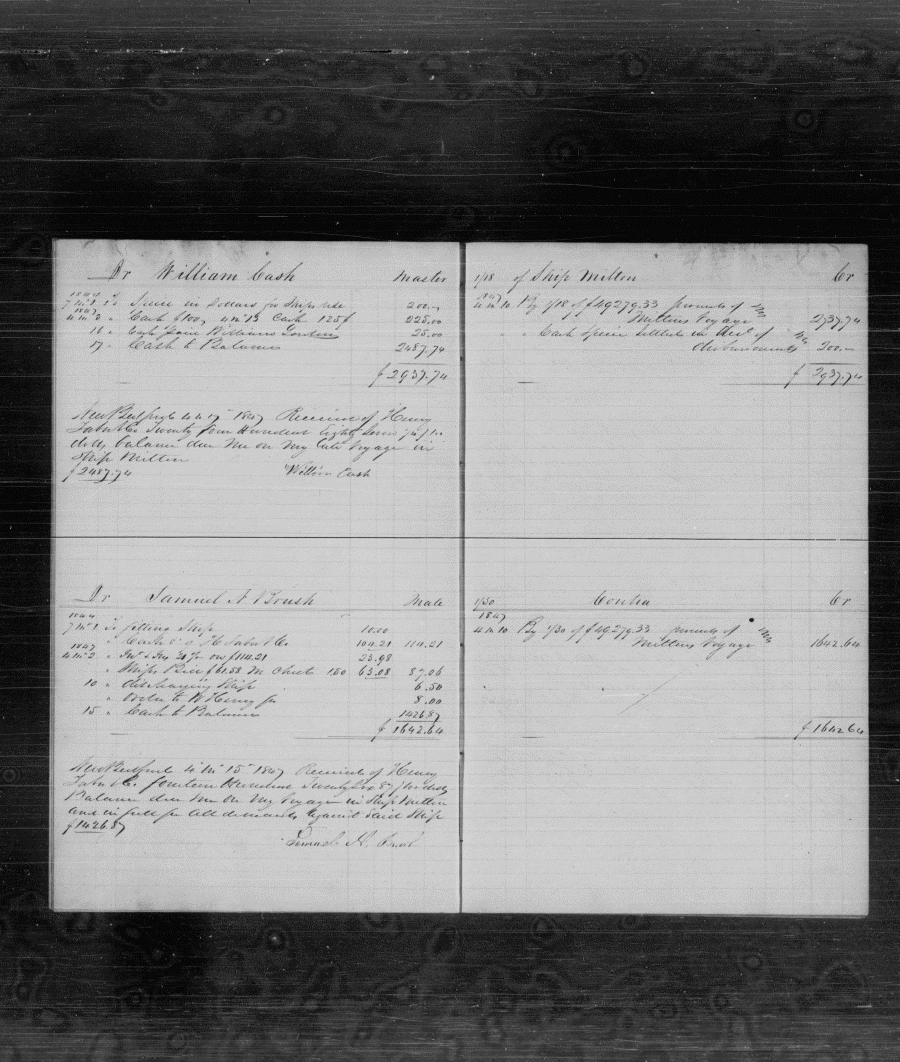 Dr William Cash Master
1844
7 Mo 1 To in Dollars for Ships use 200.—
1847
4 Mo 2 " Cash $100, 4 Mo 13 Cash 125$ 225.00
16 " Cash paid Williams 25.00
17 " Cash to Balance 2487.74
$2937.74
New Bedford 4 Mo 17 1847 Received of Henry
Taber & Co Twenty four Hundred Eighty Seven 74/100
dolls balance due Me on My late Voyage in
Ship Milton
$2487.74 William Cash
1/18 of Ship Milton Cr
1847
4 Mo 10 By 1/18 of $49279.33 proceeds of
Miltons Voyage 2737.74
" " Cash Specie Settled in Acct of
disbursements 200.—
$2937.74
Dr Samuel A Brush Mate
1844
7 Mo 1 To fitting Ship 10.00
" Cash H Taber & Co 104.21 114.21
1847
4 Mo 2 " on $114.21 23.98
" Ships Bill $61.58 M Chest 1.50 63.08 87.06
10 " discharging Ship 6.50
" Order to W Henry Jr 8.00
15 " Cash to Balance 1426.87
$1642.64
New Bedford 4 Mo 15 1847 Received of Henry
Taber & Co fourteen Hundred Twenty Six 87/100 dolls
Balance due Me on My Voyage in Ship Milton
and in full for all demands against Said Ship
$1426.87
Samuel A. Brush
1/30 Contra Cr
1847
4 Mo 10 By 1/30 of $49279.33 proceeds of
Miltons Voyage 1642.64
$1642.64